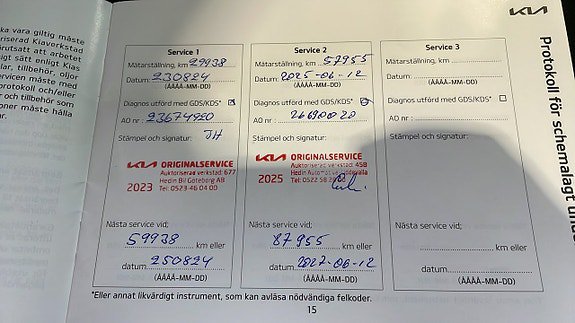 ka vara giltig måste
riserad Kiaverkstad
rutsatt att arbetet
igt sätt enligt Kias
lar, tillbehör, oljor
ervicen måste med
protokoll och/eller
r och tillbehör som
oner måste hålla
KIA
Protokoll för schemalagt
Service 1
Mätarställning, km 29938
Datum: 230824
(ÅÅÅÅ-MM-DD)
Diagnos utförd med GDS/KDS*
AO nr : 23674920
Stämpel och signatur:
JH
KIA ORIGINALSERVICE
Auktoriserad verkstad: 677
Hedin Bil Göteborg AB
2023 Tel: 0523-46 04 00
Nästa service vid;
59938 km eller
datum 250824
(ÅÅÅÅ-MM-DD)
Service 2
Mätarställning, km 57955
Datum: 2025-06-12
(ÅÅÅÅ-MM-DD)
Diagnos utförd med GDS/KDS*
AO nr : 26690020
Stämpel och signatur:
KIA ORIGINALSERVICE
Auktoriserad verkstad: 458
Hedin Automotive
2025 Tel: 0522
Nästa service vid;
87955 km eller
datum 2027-06-12
(ÅÅÅÅ-MM-DD)
Service 3
Mätarställning, km
Datum:
(ÅÅÅÅ-MM-DD)
Diagnos utförd med GDS/KDS*
AO nr :
Stämpel och signatur:
Nästa service vid;
km eller
datum
(ÅÅÅÅ-MM-DD)
*Eller annat likvärdigt instrument, som kan avläsa nödvändiga felkoder.
15